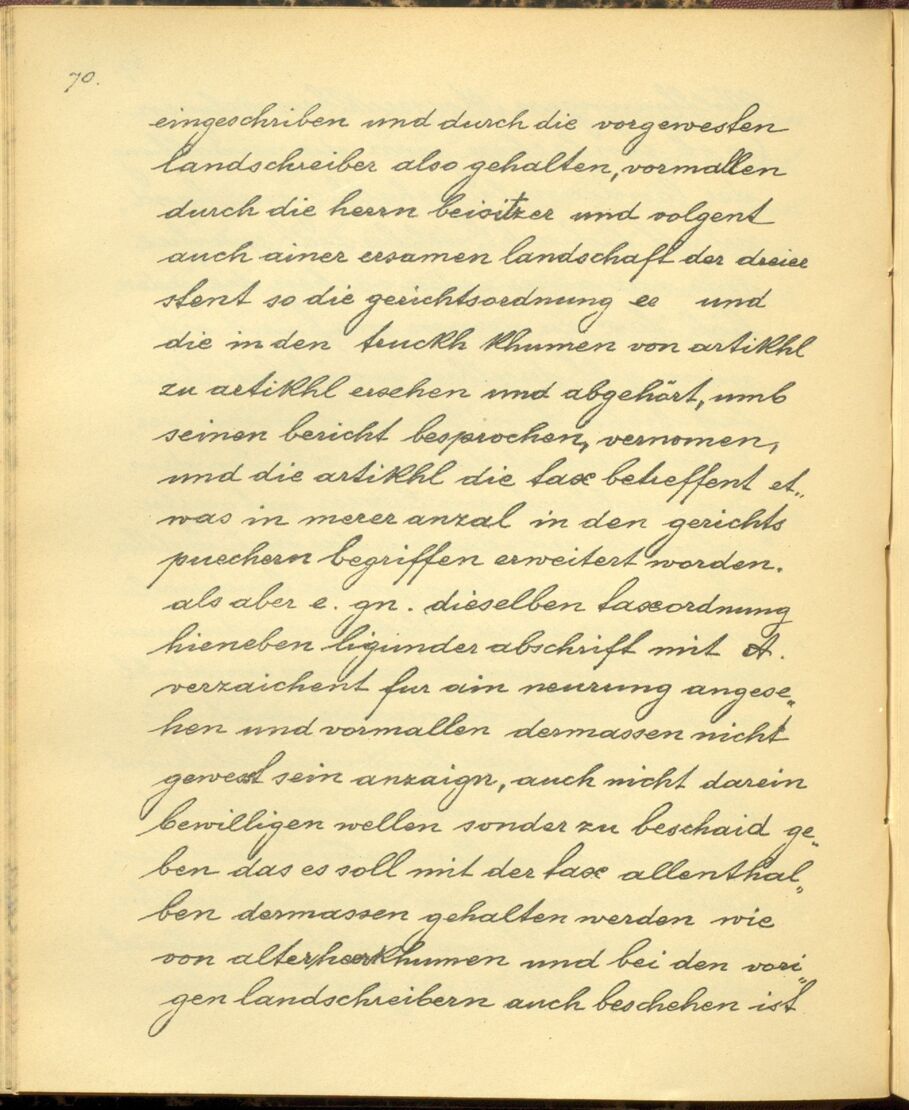 70.
eingeschriben und durch die vorgewesten
landschreiber also gehalten, vormallen
durch die herrn beisitzer und volgent
auch ainer ersamen landschaft der dreier
stent so die gerichtsordnung er und
die in den truckh khumen von artikhl
zu artikhl ersehen und abgehört, umb
seinen bericht besprochen, vernomen,
und die artikhl die tax betreffent et„
was in merer anzal in den gerichts
puechern begriffen erweitert worden.
als aber e. gn. dieselben taxordnung
hieneben ligunder abschrift mit A.
verzaichent fur ain neurung angese„
hen und vormallen dermassen nicht
gewesst sein anzaign, auch nicht darein
bewilligen wellen sonder zu beschaid ge„
ben das es soll mit der tax allenthal„
ben dermassen gehalten werden wie
von alter herkhumen und bei den vori„
gen landschreibern auch beschehen ist